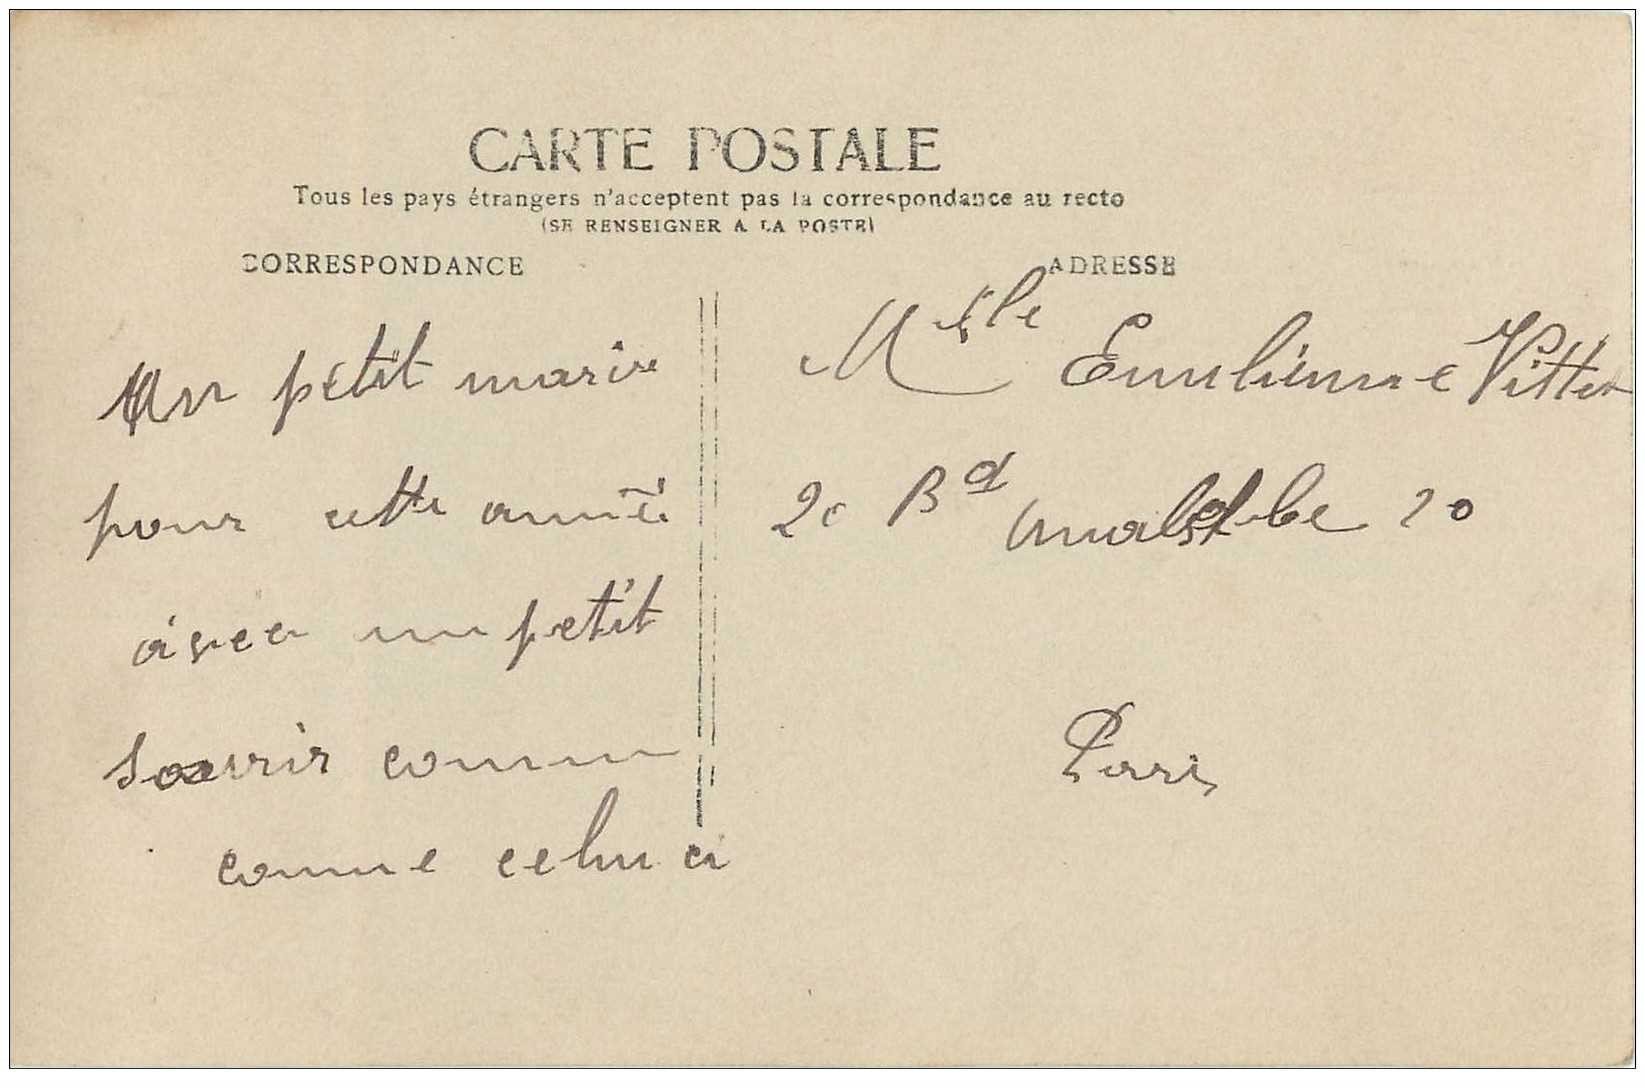 CARTE POSTALE
Tous les pays étrangers n'acceptent pas la correspondance au recto
(SE RENSEIGNER A LA POSTE)
CORRESPONDANCE
ADRESSE
petit
pour cette année
avec un petit
sourir comm
comme celui ci
Mlle Emilienne
20 Bd 20
Paris